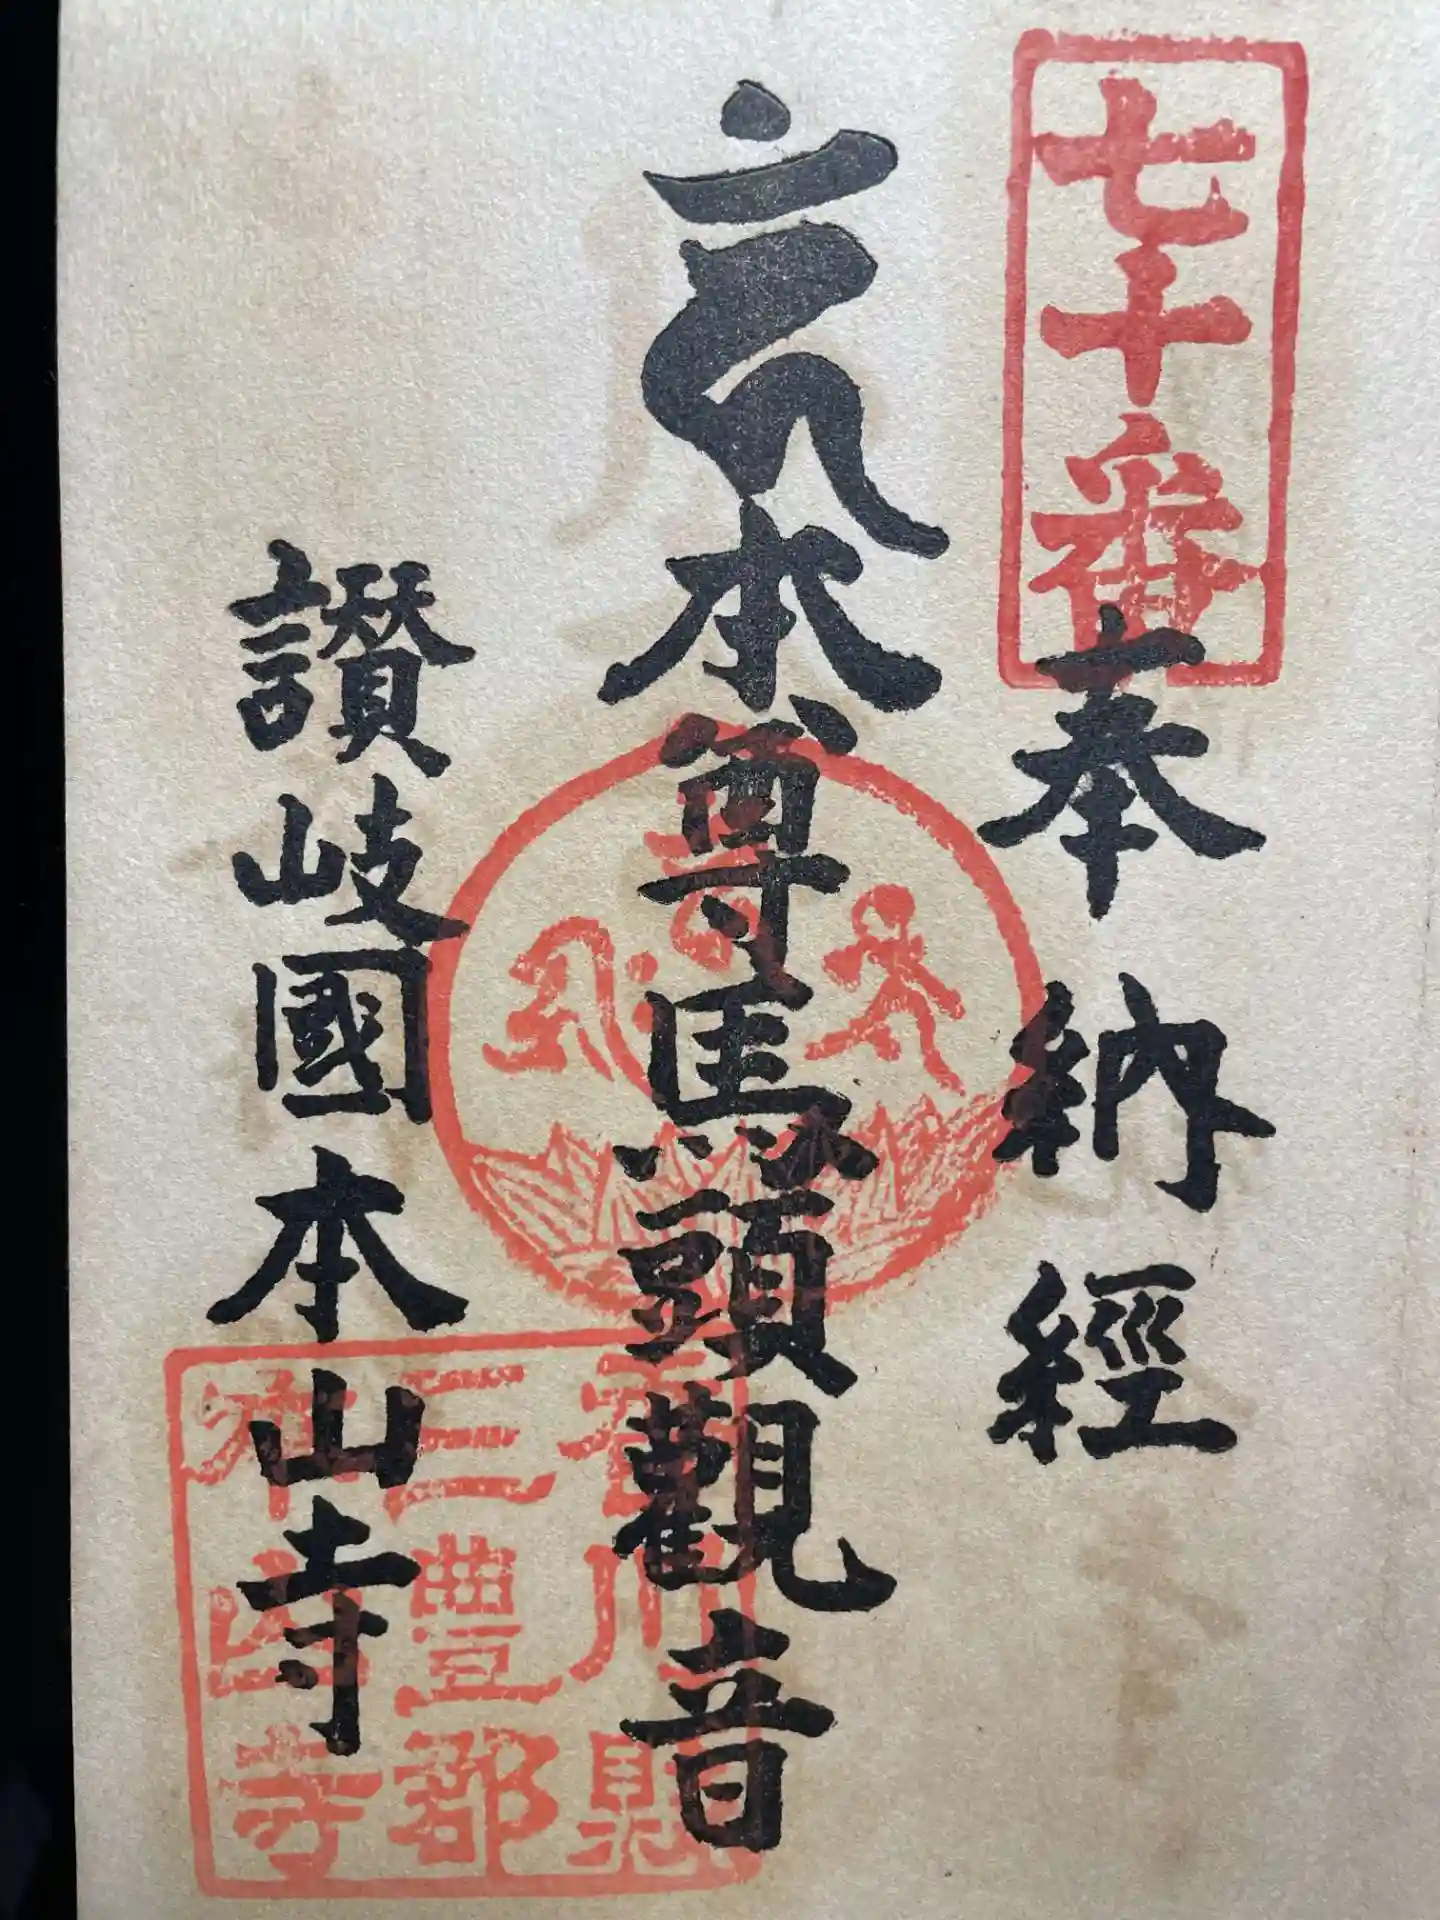 七十番
奉納経
本尊馬頭觀音
讃岐國本山寺
香川縣
三豊郡
本山寺